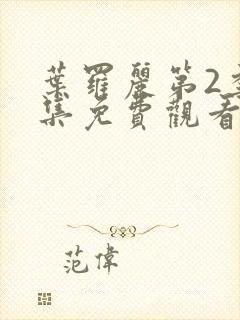 葉羅麗第2季
集免費觀看
范偉